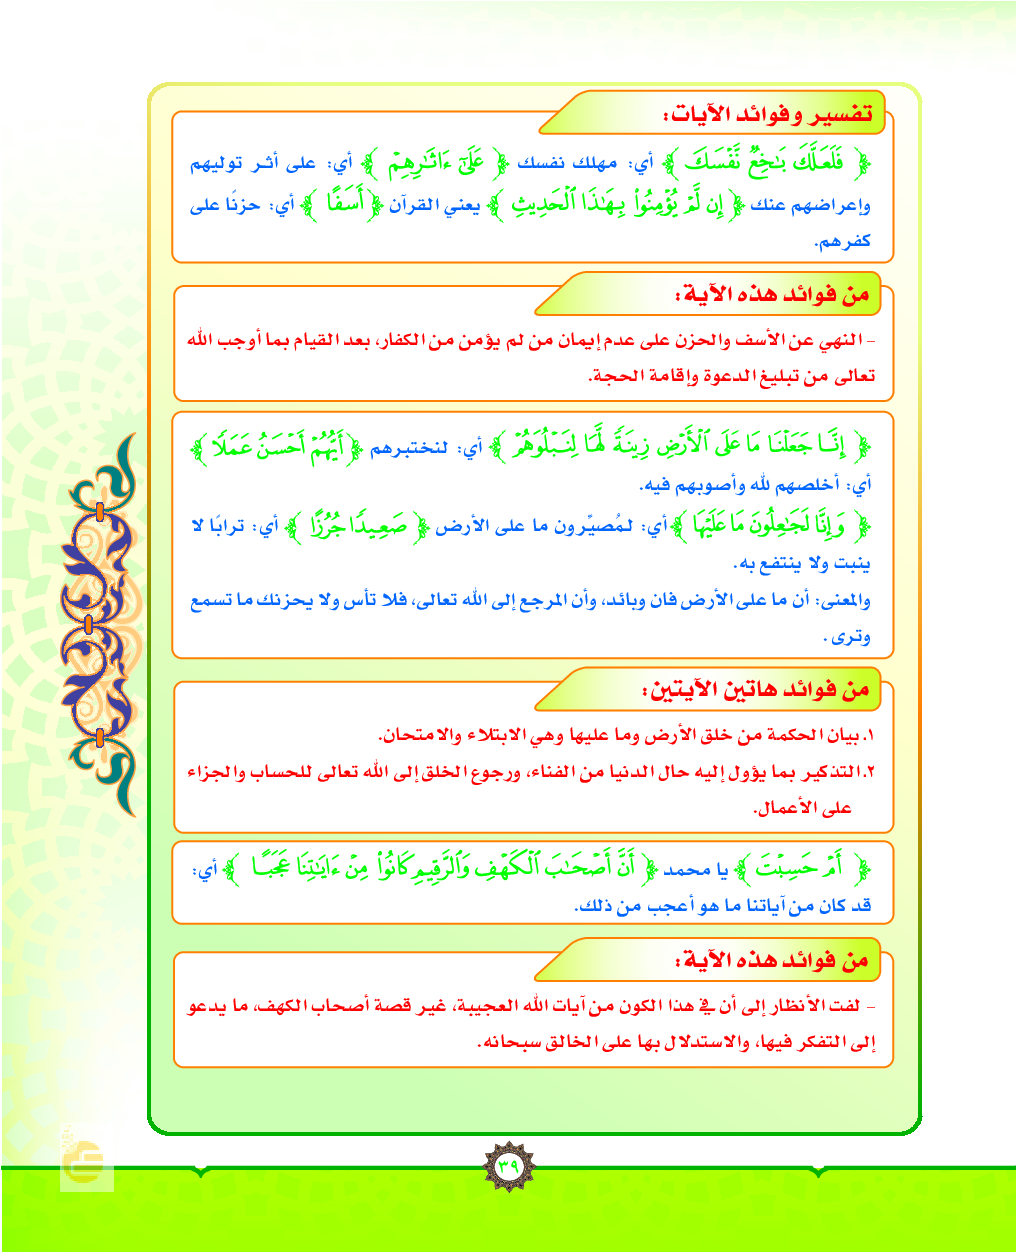 تفسير وفوائد الآيات:
﴿ فَلَعَلَّكَ بَٰخِعٌ نَّفْسَكَ ﴾ أي: مهلك نفسك ﴿ عَلَىٰٓ ءَاثَٰرِهِمْ ﴾ أي: على أثر توليهم
وإعراضهم عنك ﴿ إِن لَّمْ يُؤْمِنُوا۟ بِهَٰذَا ٱلْحَدِيثِ ﴾ يعني القرآن ﴿ أَسَفًا ﴾ أي: حزنًا على
كفرهم.
من فوائد هذه الآية:
- النهي عن الأسف والحزن على عدم إيمان من لم يؤمن من الكفار، بعد القيام بما أوجب الله
تعالى من تبليغ الدعوة وإقامة الحجة.
﴿ إِنَّا جَعَلْنَا مَا عَلَى ٱلْأَرْضِ زِينَةً لَّهَا لِنَبْلُوَهُمْ ﴾ أي: لنختبرهم ﴿ أَيُّهُمْ أَحْسَنُ عَمَلًا ﴾
أي: أخلصهم لله وأصوبهم فيه.
﴿ وَإِنَّا لَجَٰعِلُونَ مَا عَلَيْهَا ﴾ أي: لمُصيِّرون ما على الأرض ﴿ صَعِيدًا جُرُزًا ﴾ أي: ترابًا لا
ينبت ولا ينتفع به.
والمعنى: أن ما على الأرض فان وبائد، وأن المرجع إلى الله تعالى، فلا تأس ولا يحزنك ما تسمع
وترى .
من فوائد هاتين الآيتين:
١. بيان الحكمة من خلق الأرض وما عليها وهي الابتلاء والامتحان.
٢. التذكير بما يؤول إليه حال الدنيا من الفناء، ورجوع الخلق إلى الله تعالى للحساب والجزاء
على الأعمال.
﴿ أَمْ حَسِبْتَ ﴾ يا محمد ﴿ أَنَّ أَصْحَٰبَ ٱلْكَهْفِ وَٱلرَّقِيمِ كَانُوا۟ مِنْ ءَايَٰتِنَا عَجَبًا ﴾ أي:
قد كان من آياتنا ما هو أعجب من ذلك.
من فوائد هذه الآية:
- لفت الأنظار إلى أن في هذا الكون من آيات الله العجيبة، غير قصة أصحاب الكهف، ما يدعو
إلى التفكر فيها، والاستدلال بها على الخالق سبحانه.
٣٩